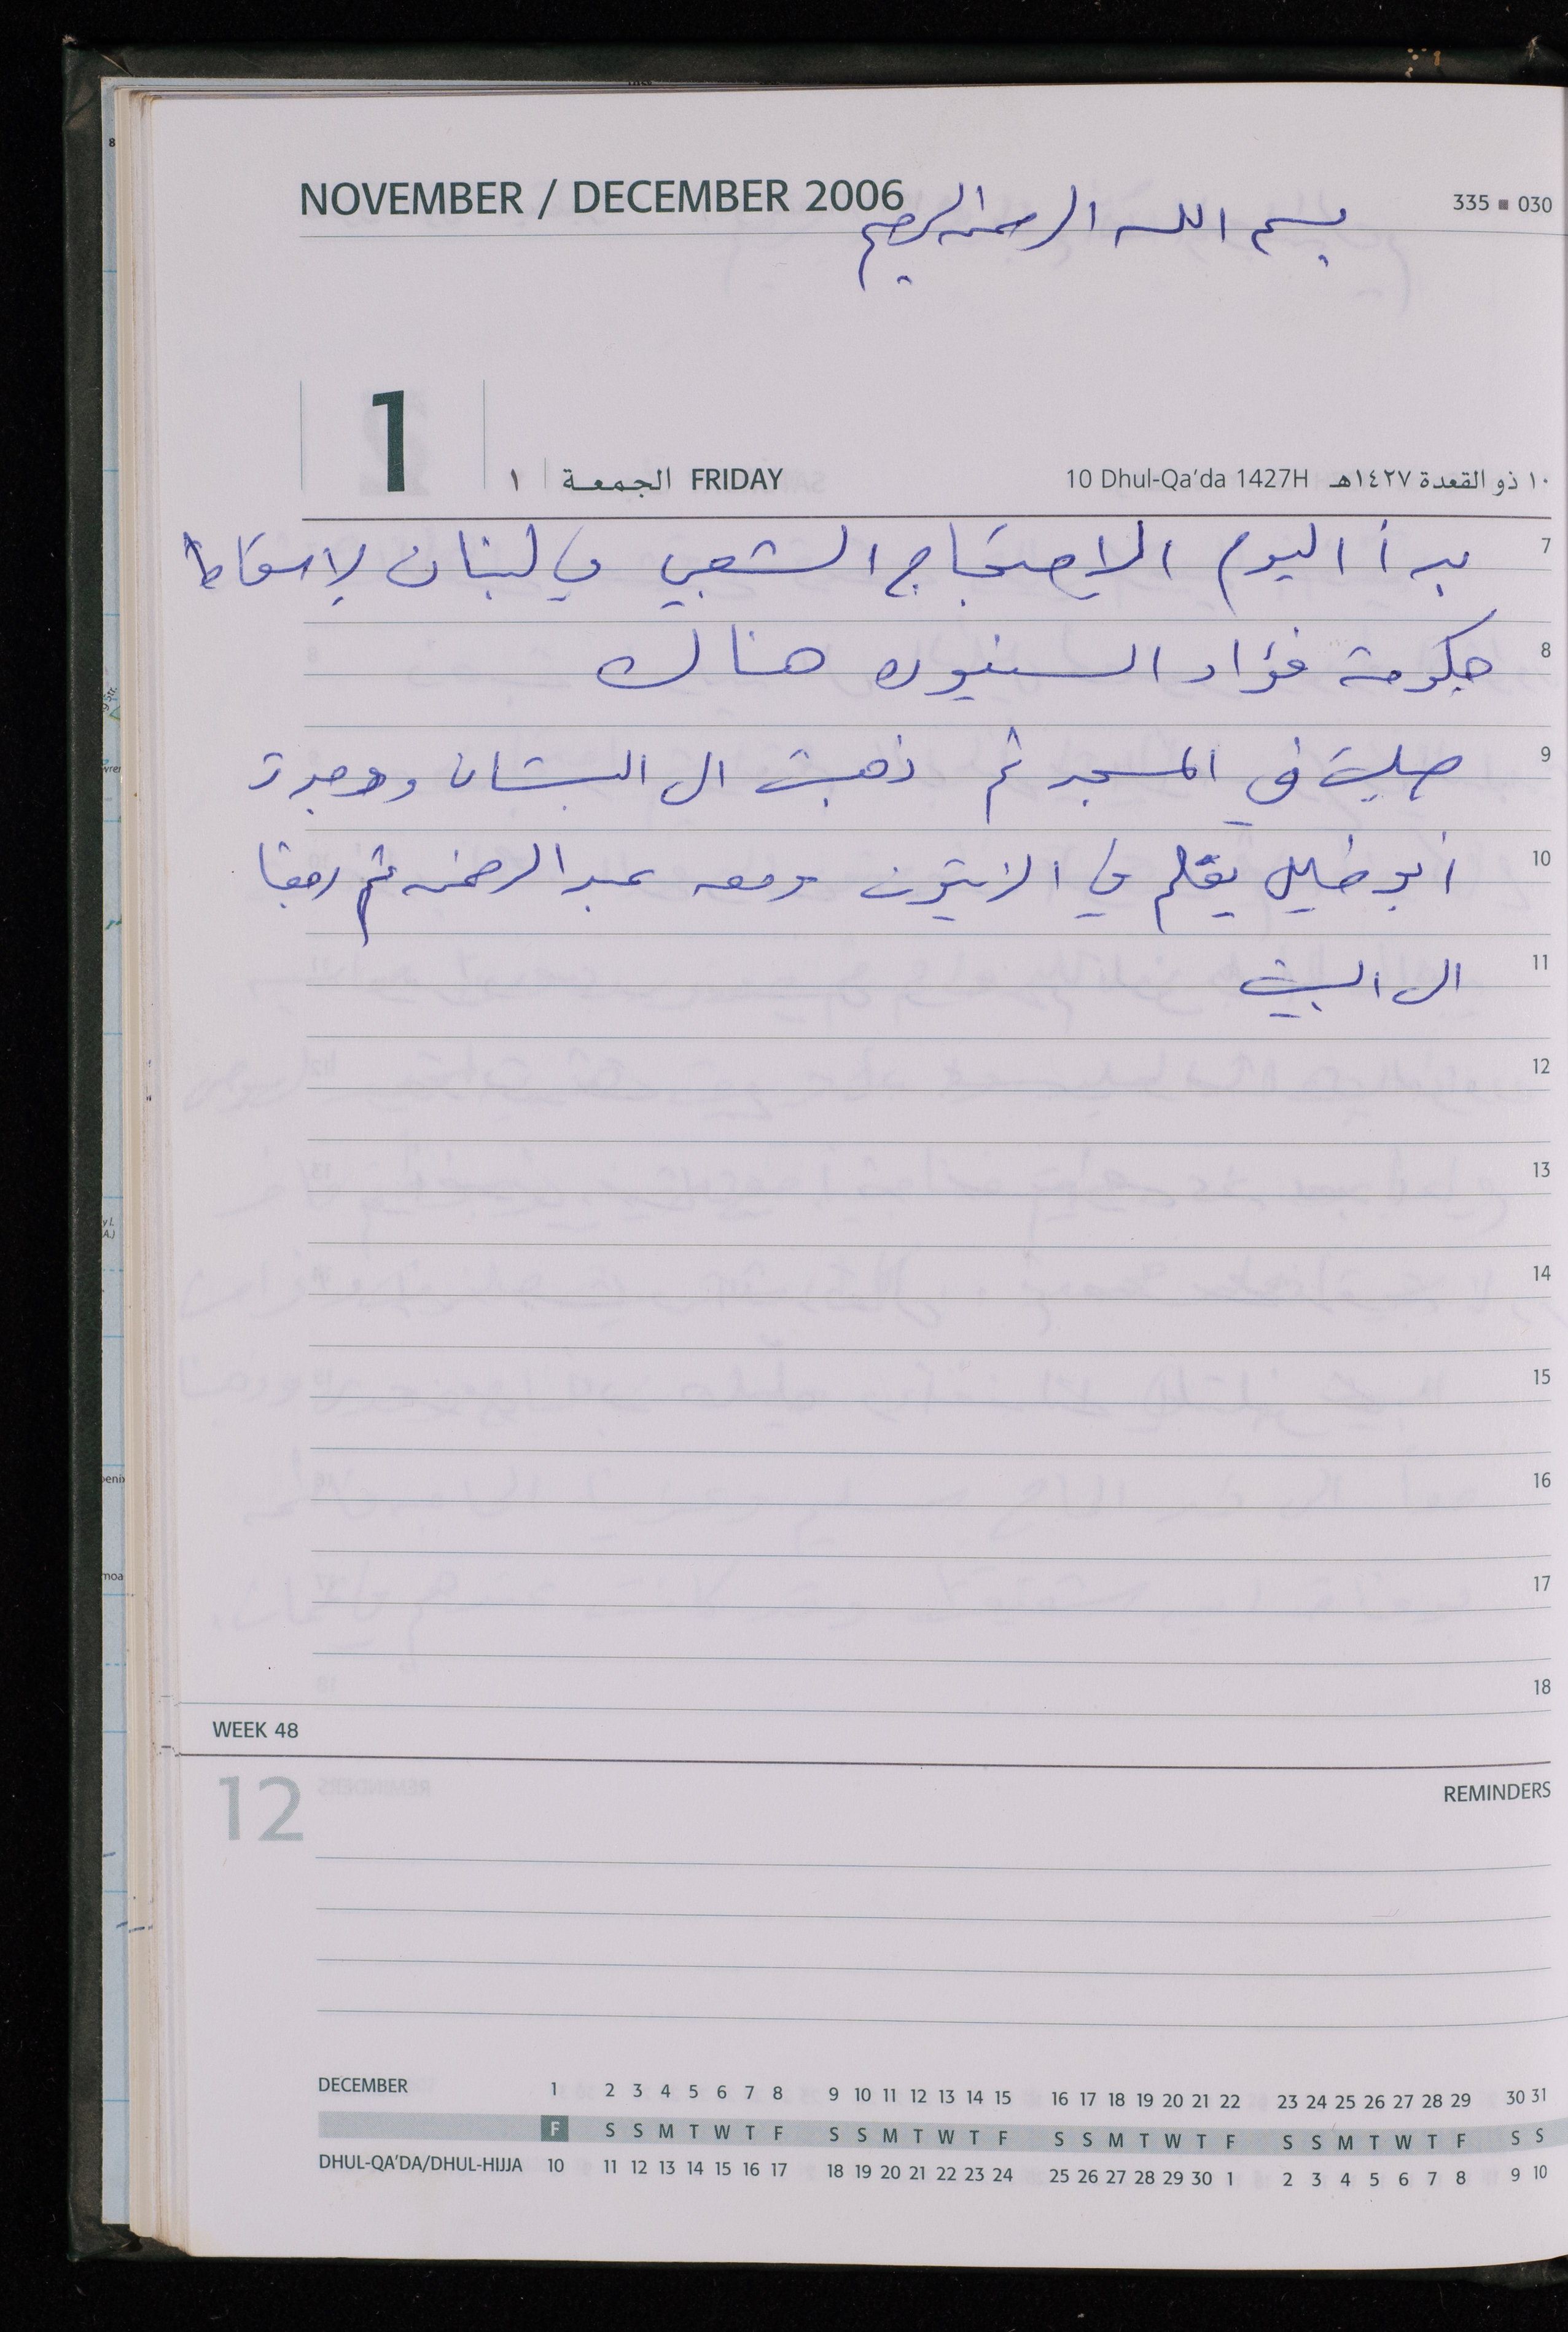 NOVEMBER / DECEMBER 2006
335 ■ 030
بسم الله الرحمن الرحيم
1
١ | الجمعة FRIDAY
10 Dhul-Qa'da 1427H ١٠ ذو القعدة ١٤٢٧هـ
7
بدأ اليوم الاحتجاج الشعبي في لبنان لاسقاط
8
حكومة فؤاد السنيوره هناك
9
صليت في المسجد ثم ذهبت الى البستان ووجدت
10
أبو خليل يقلم في الزيتون ومعه عبد الرحمن ثم رجعنا
11
الى البيت
12
13
14
15
16
17
18
WEEK 48
12
REMINDERS
DECEMBER 1 2 3 4 5 6 7 8 9 10 11 12 13 14 15 16 17 18 19 20 21 22 23 24 25 26 27 28 29 30 31
F S S M T W T F S S M T W T F S S M T W T F S S M T W T F S S
DHUL-QA'DA/DHUL-HIJJA 10 11 12 13 14 15 16 17 18 19 20 21 22 23 24 25 26 27 28 29 30 1 2 3 4 5 6 7 8 9 10